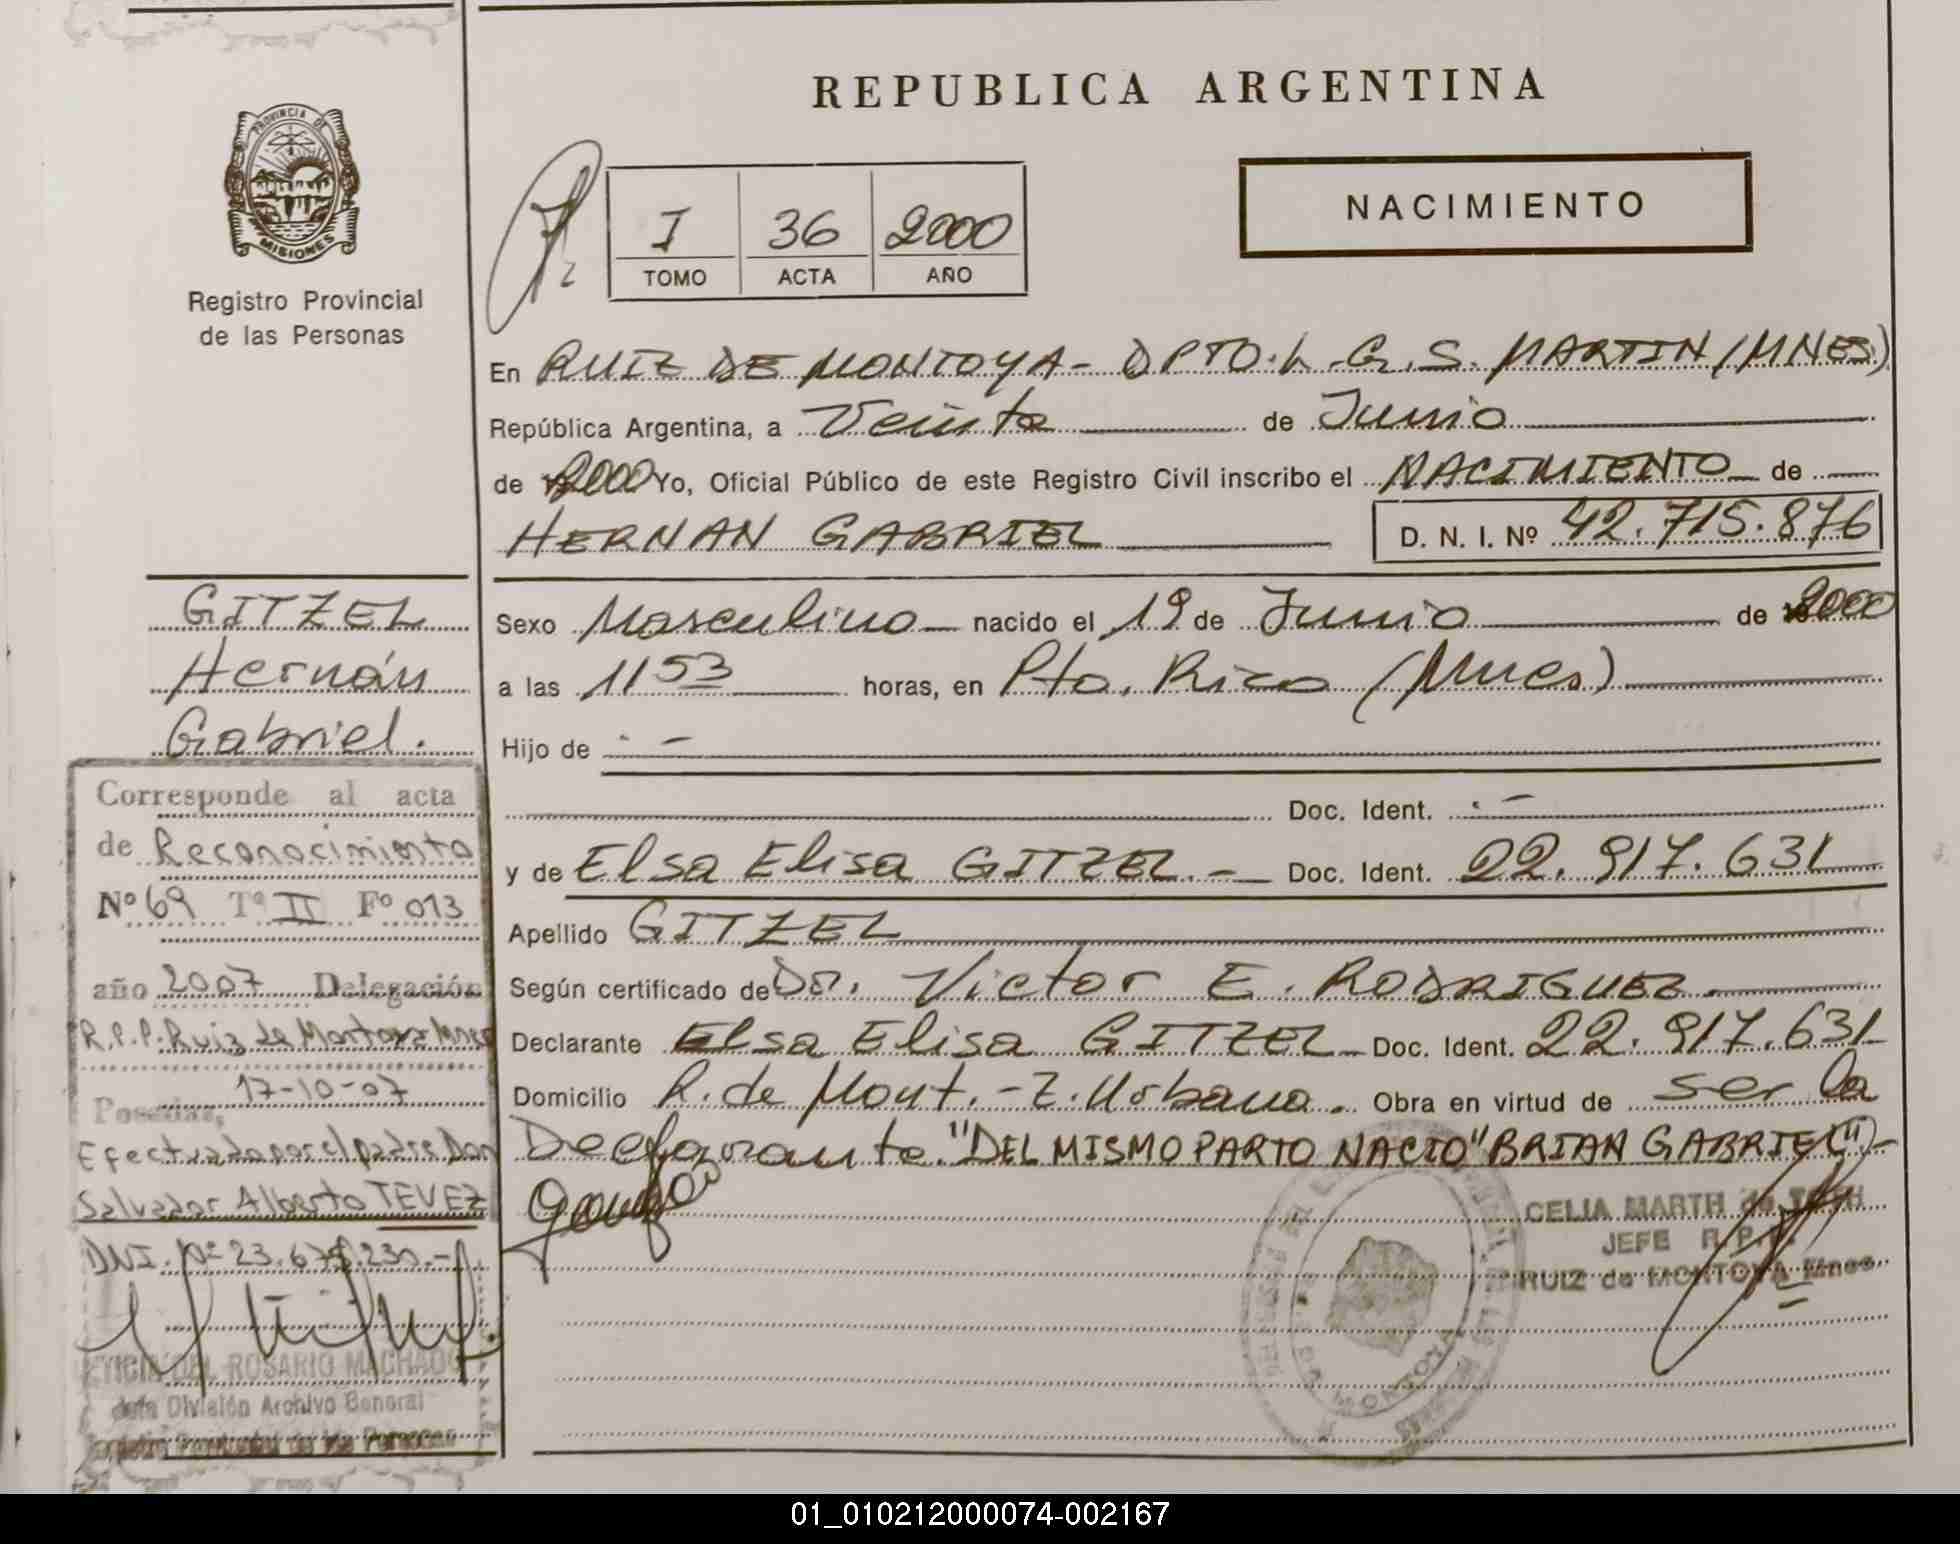 REPUBLICA ARGENTINA
PROVINCIA DE
MISIONES
Registro Provincial
de las Personas
I 36 2000
TOMO ACTA AÑO
NACIMIENTO
En RUIZ DE MONTOYA - DPTO. L. G. S. MARTIN (MNES)
República Argentina, a Veinte de Junio
de 2000 Yo, Oficial Público de este Registro Civil inscribo el NACIMIENTO de
HERNAN GABRIEL D. N. I. Nº 42.715.876
Sexo Masculino nacido el 19 de Junio de 2000
a las 11 53 horas, en Pto. Rico (Mnes)
Hijo de . -
Doc. Ident. . -
y de Elsa Elisa GITZEL. - Doc. Ident. 22.917.631
Apellido GITZEL
Según certificado de Dr. Victor E. RODRIGUEZ.
Declarante Elsa Elisa GITZEL - Doc. Ident. 22.917.631
Domicilio R. de Mont. - Z. Urbana. Obra en virtud de ser la
Declarante. "DEL MISMO PARTO NACIO" BRIAN GABRIEL(") -
CELIA MARTH de
JEFE R.P.P.
RUIZ de MONTOYA Mnes
DE MONTOYA
GITZEL
Hernán
Gabriel.
Corresponde al acta
de Reconocimiento
Nº 69 Tº II Fº 013
año 2007 Delegación
R.P.P. Ruiz de Montoya Mnes
Posadas, 17-10-07
Efectuada por el padre Don
Salvador Alberto TEVEZ
DNI. Nº 23.67
DEL ROSARIO MACHADO
Jefa División Archivo General
de las Personas
01_010212000074-002167